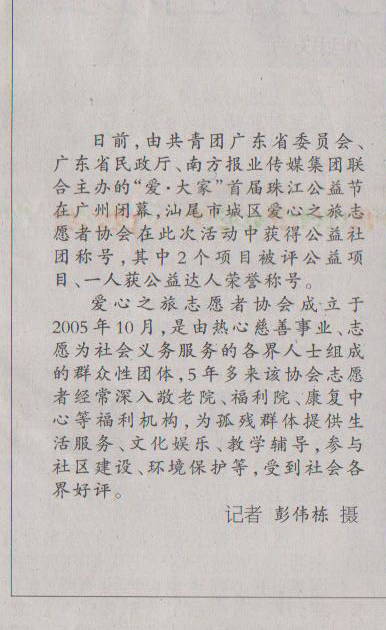 日前，由共青团广东省委员会、
广东省民政厅、南方报业传媒集团联
合主办的“爱·大家”首届珠江公益节
在广州闭幕，汕尾市城区爱心之旅志
愿者协会在此次活动中获得公益社
团称号，其中2个项目被评公益项
目、一人获公益达人荣誉称号。
爱心之旅志愿者协会成立于
2005年10月，是由热心慈善事业、志
愿为社会义务服务的各界人士组成
的群众性团体，5年多来该协会志愿
者经常深入敬老院、福利院、康复中
心等福利机构，为孤残群体提供生
活服务、文化娱乐、教学辅导，参与
社区建设、环境保护等，受到社会各
界好评。
记者 彭伟栋 摄